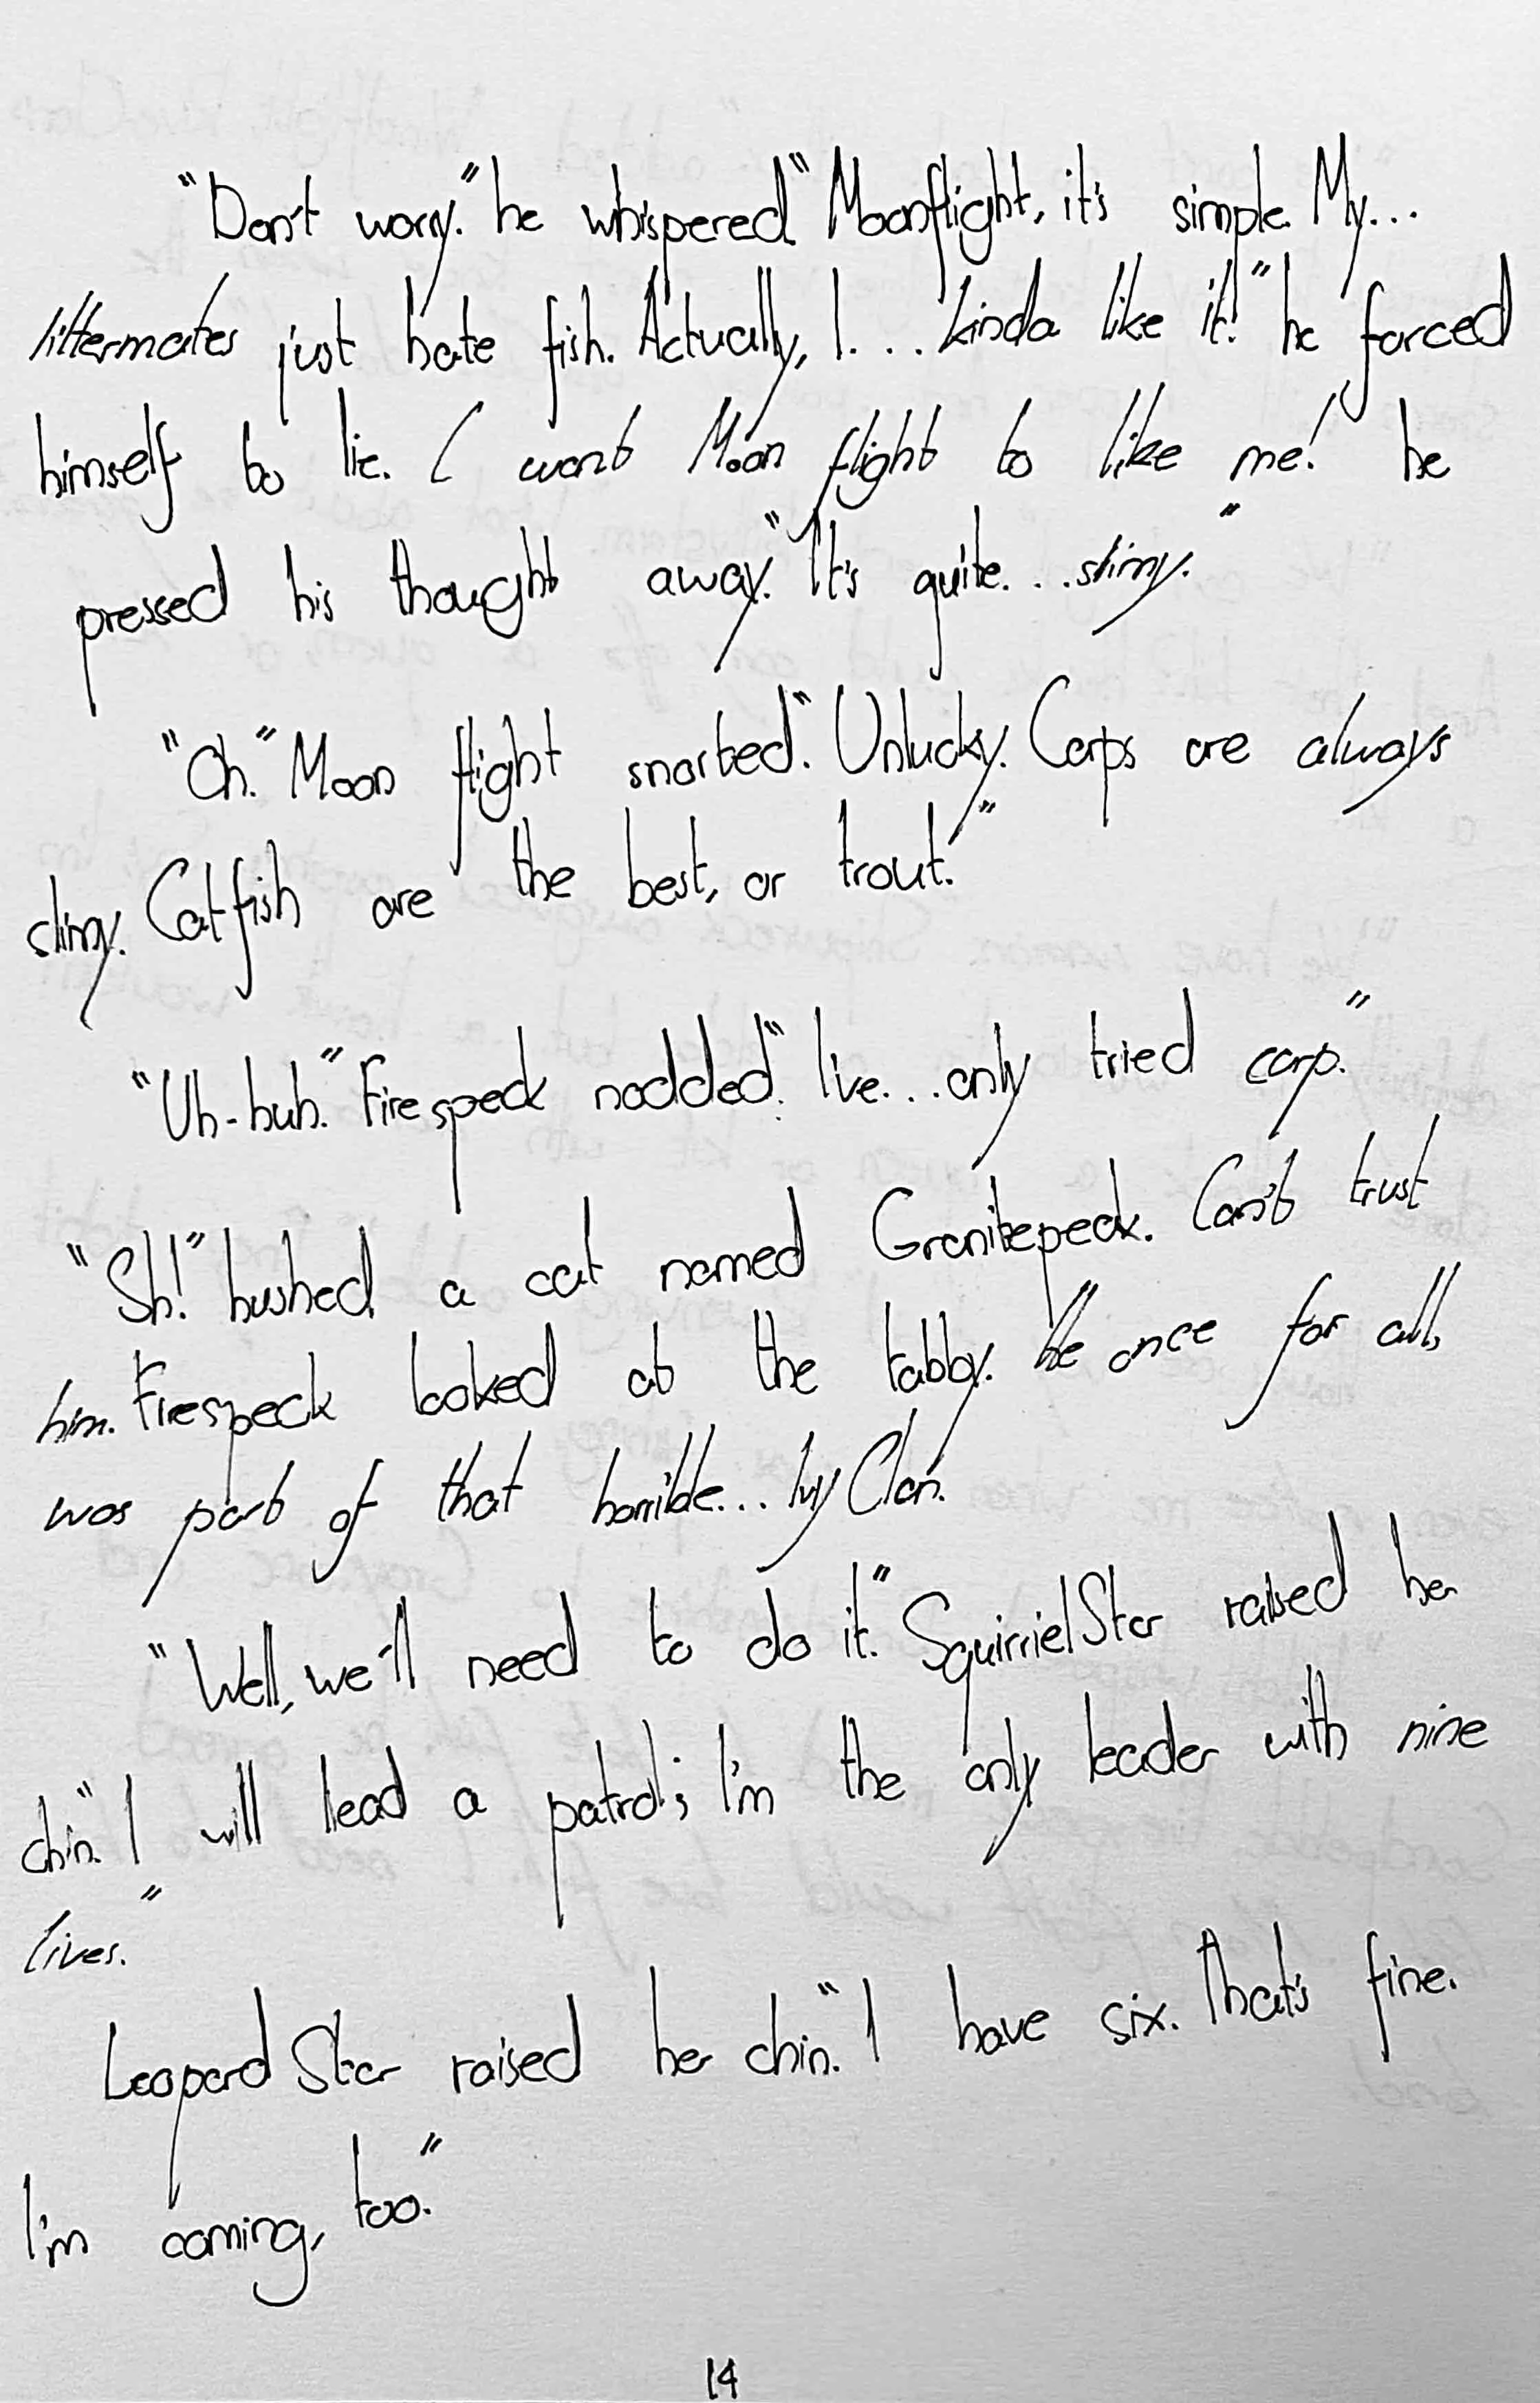 "Don't worry." he whispered. "Moonflight, it's simple. My...
littermates just hate fish. Actually, I... kinda like it!" he forced
himself to lie. I want Moon flight to like me! he
pressed his thought away. "It's quite... slimy."
"Oh." Moon flight snorted. "Unlucky. Carps are always
slimy. Catfish are the best, or trout."
"Uh-huh." Firespeck nodded. "I've... only tried carp."
"Sh!" hushed a cat named Granitepeak. Can't trust
him. Firespeck looked at the tabby. He once for all,
was part of that horrible... IvyClan.
"Well, we'll need to do it." SquirrielStar raised her
chin. "I will lead a patrol; I'm the only leader with nine
lives."
Leopard Star raised her chin. "I have six. That's fine.
I'm coming, too."
14